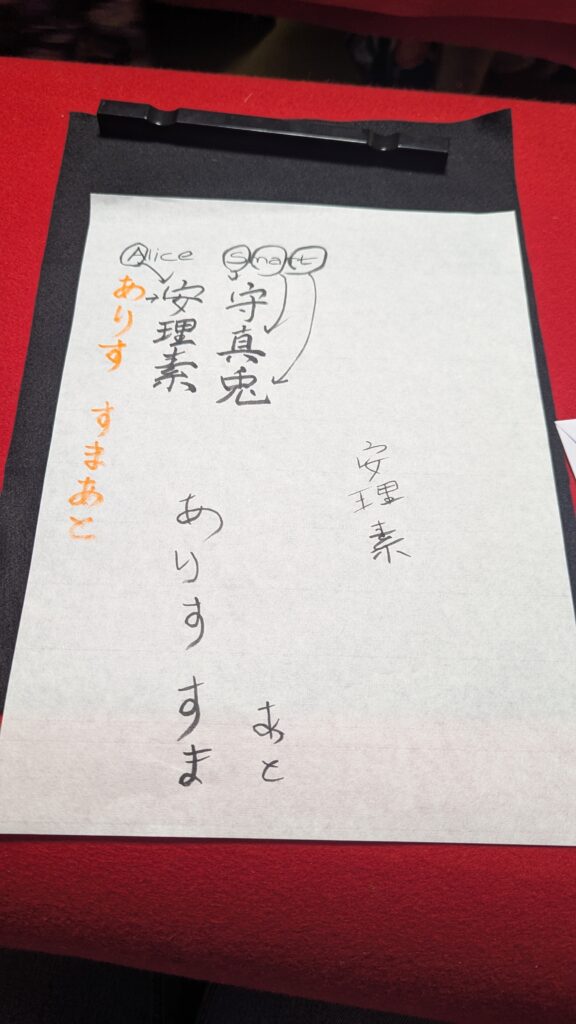 Alice Smart
安理素
守真兎
ありす すまあと
安理素
ありす すま
あと